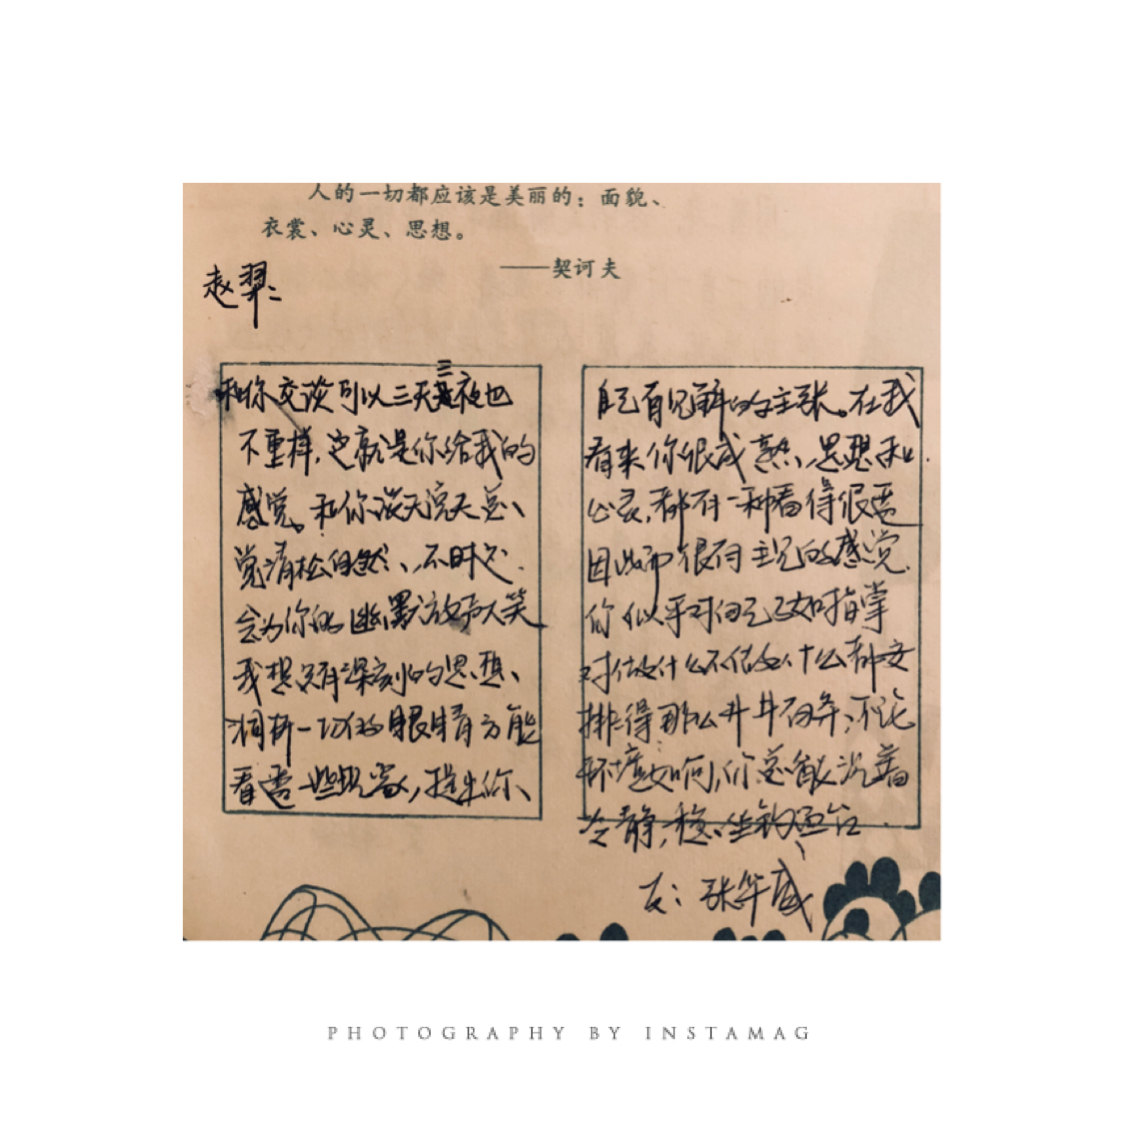 人的一切都应该是美丽的：面貌、
衣裳、心灵、思想。
——契诃夫
赵羿：
和你交谈可以三天三夜也
不重样，这就是你给我的
感觉。和你谈天说天总、
觉清松自然、、不时会.
会为你的幽默放声大笑
我想只有深刻的思想、
洞析一切的眼睛方能
看透一些现象，提出你、
自己有见解的主张。在我
看来你很成熟、思想和.
心灵，都有一种看得很透
因此而很有主见的感觉.
你似乎对自己了如指掌
对做什么不做什么都安
排得那么井井有条，不论
环境如何，你总能沉着
冷静，稳、坐钓鱼台.
友：张华威
PHOTOGRAPHY BY INSTAMAG